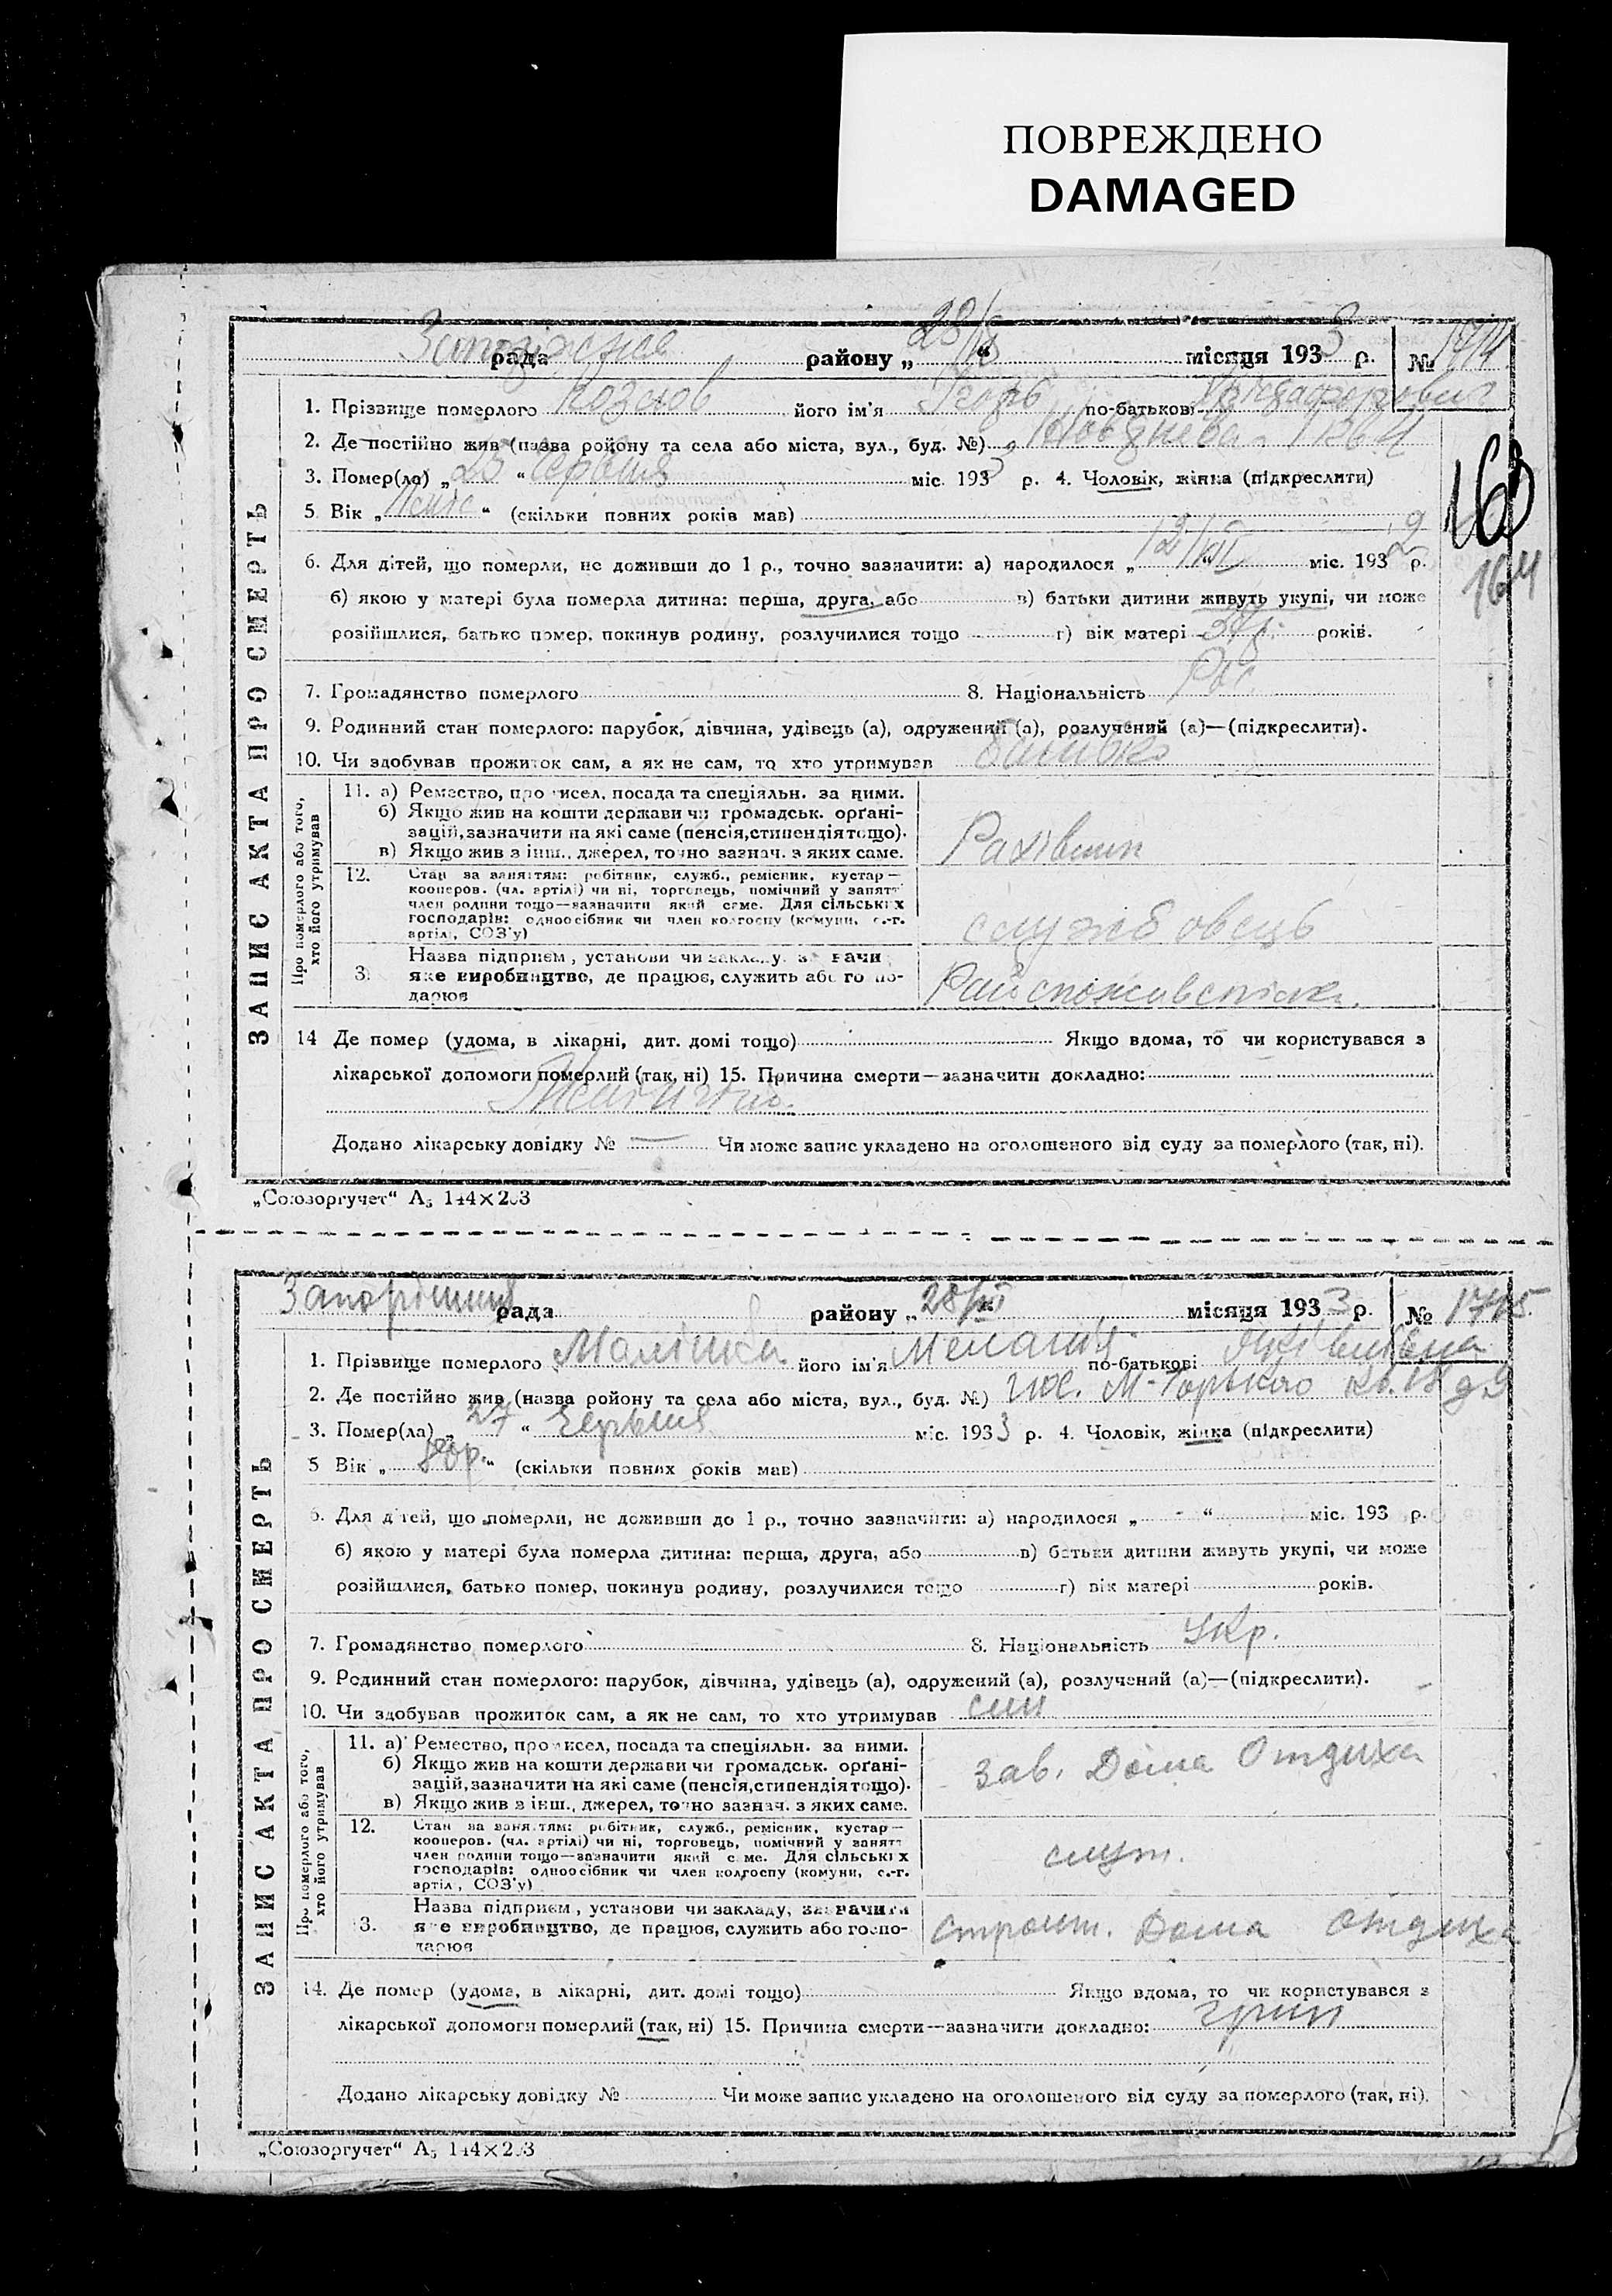 ПОВРЕЖДЕНО
DAMAGED
рада району „ 28/ “ місяця 1933 р. № 1714
1. Прізвище померлого Козлов його ім'я Ігорь по-батькові
2. Де постійно жив (назва ройону та села або міста, вул., буд. №)
3. Помер(ла) „ 25 “ червня міс. 1933 р. 4. Чоловік, жінка (підкреслити)
5 Вік „ “ (скільки повних років мав)
163
164
6. Для дітей, що померли, не доживши до 1 р., точно зазначити: а) народилося „ 12/VII “ міс. 1932 р.
б) якою у матері була померла дитина: перша, друга, або в) батьки дитини живуть укупі, чи може
розійшлися, батько помер, покинув родину, розлучилися тощо г) вік матері років.
7. Громадянство померлого 8. Національність Рос.
9. Родинний стан померлого: парубок, дівчина, удівець (а), одружений (а), розлучений (а)—(підкреслити).
10. Чи здобував прожиток сам, а як не сам, то хто утримував батько
ЗАПИС АКТА ПРО СМЕРТЬ
Про померлого або того,
хто його утримував
11. а) Ремество, про исел, посада та спеціяльн. за ними.
б) Якщо жив на кошти держави чи громадськ. орґані-
зацій, зазначити на які саме (пенсія, стипендія тощо).
в) Якщо жив з інш., джерел, точно зазнач. з яких саме.
Рахівник
12. Стан за заняттям: робітник, служб., ремісник, кустар—
кооперов. (чл. артілі) чи ні, торговець, помічний у занятт
член родини тощо—зазначити який саме. Для сільських
господарів: одноосібник чи член колгоспу (комуни, с.-г.
артілі, СОЗ'у)
службовець
3. Назва підприєм, установи чи закладу, з вачи
яке виробництво, де працює, служить або го по-
дарює
Райспоживспілка.
14 Де помер (удома, в лікарні, дит. домі тощо) Якщо вдома, то чи користувався з
лікарської допомоги померлий (так, ні) 15. Причина смерти—зазначити докладно:
Менінгит.
Додано лікарську довідку № — Чи може запис укладено на оголошеного від суду за померлого (так, ні).
„Союзоргучет“ А5 144×203
рада району „ 28/VI “ місяця 1933 р. № 1715
1. Прізвище померлого його ім'я Меланія по-батькові
2. Де постійно жив (назва ройону та села або міста, вул., буд. №) М-Горького кв. 18 д 9
3. Помер(ла) „ 27 “ Червня міс. 1933 р. 4. Чоловік, жінка (підкреслити)
5 Вік „ 80р. “ (скільки повних років мав)
6. Для дітей, що померли, не доживши до 1 р., точно зазначити: а) народилося „ “ міс. 193 р.
б) якою у матері була померла дитина: перша, друга, або в) батьки дитини живуть укупі, чи може
розійшлися, батько помер, покинув родину, розлучилися тощо г) вік матері років.
7. Громадянство померлого 8. Національність Укр.
9. Родинний стан померлого: парубок, дівчина, удівець (а), одружений (а), розлучений (а)—(підкреслити).
10. Чи здобував прожиток сам, а як не сам, то хто утримував син
ЗАПИС АКТА ПРО СМЕРТЬ
Про померлого або того,
хто його утримував
11. а) Ремество, про исел, посада та спеціяльн. за ними.
б) Якщо жив на кошти держави чи громадськ. орґані-
зацій, зазначити на які саме (пенсія, стипендія тощо).
в) Якщо жив з інш., джерел, точно зазнач. з яких саме.
зав. Дома Отдиха
12. Стан за заняттям: робітник, служб., ремісник, кустар—
кооперов. (чл. артілі) чи ні, торговець, помічний у занятт
член родини тощо—зазначити який саме. Для сільських
господарів: одноосібник чи член колгоспу (комуни, с.-г.
артілі, СОЗ'у)
3. Назва підприєм, установи чи закладу, зазначити
яке виробництво, де працює, служить або госпо-
дарює
строит. Дома отдиха
14. Де помер (удома, в лікарні, дит. домі тощо) Якщо вдома, то чи користувався з
лікарської допомоги померлий (так, ні) 15. Причина смерти—зазначити докладно: грип
Додано лікарську довідку № Чи може запис укладено на оголошеного від суду за померлого (так, ні).
„Союзоргучет“ А5 144×203